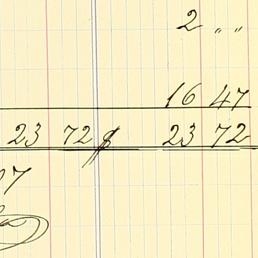 2 " "
16 47
23 72 $ 23 72
27